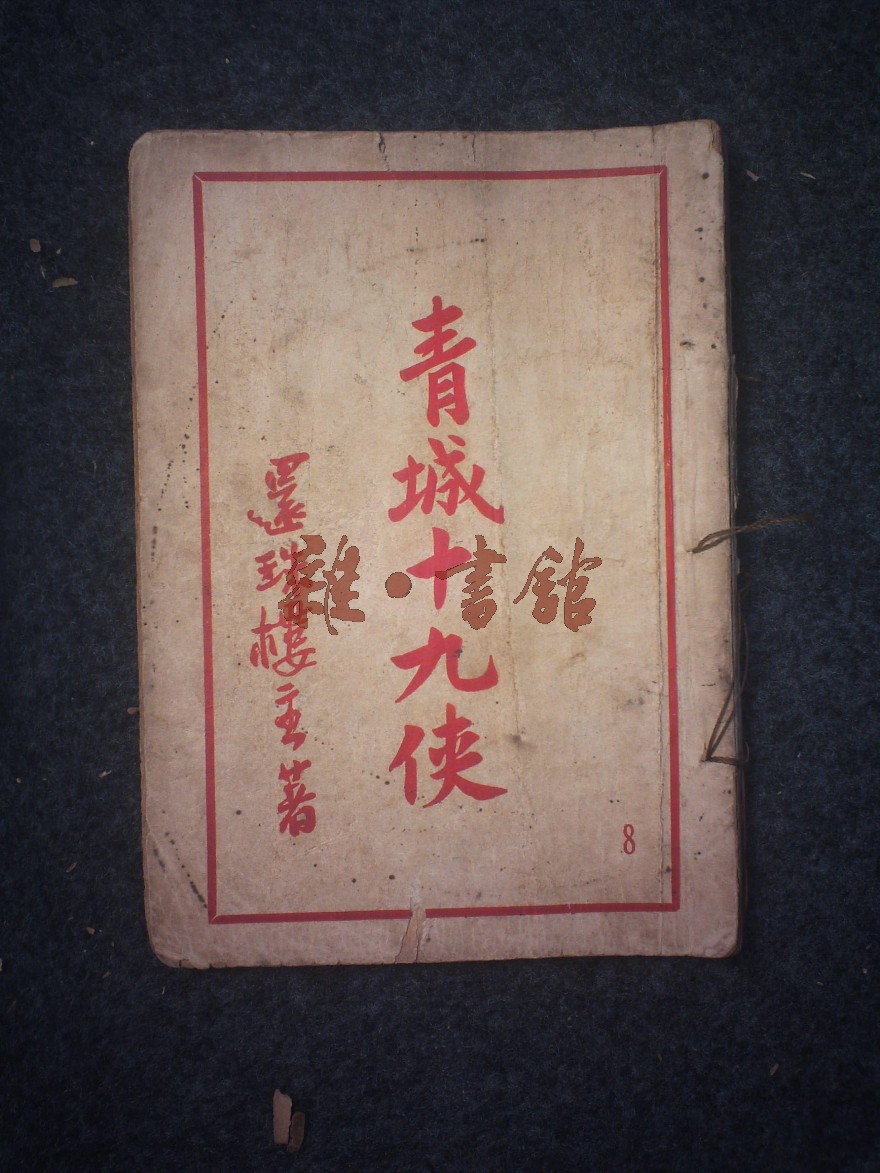 青城十九侠
還珠樓主著
8
雜·書舘